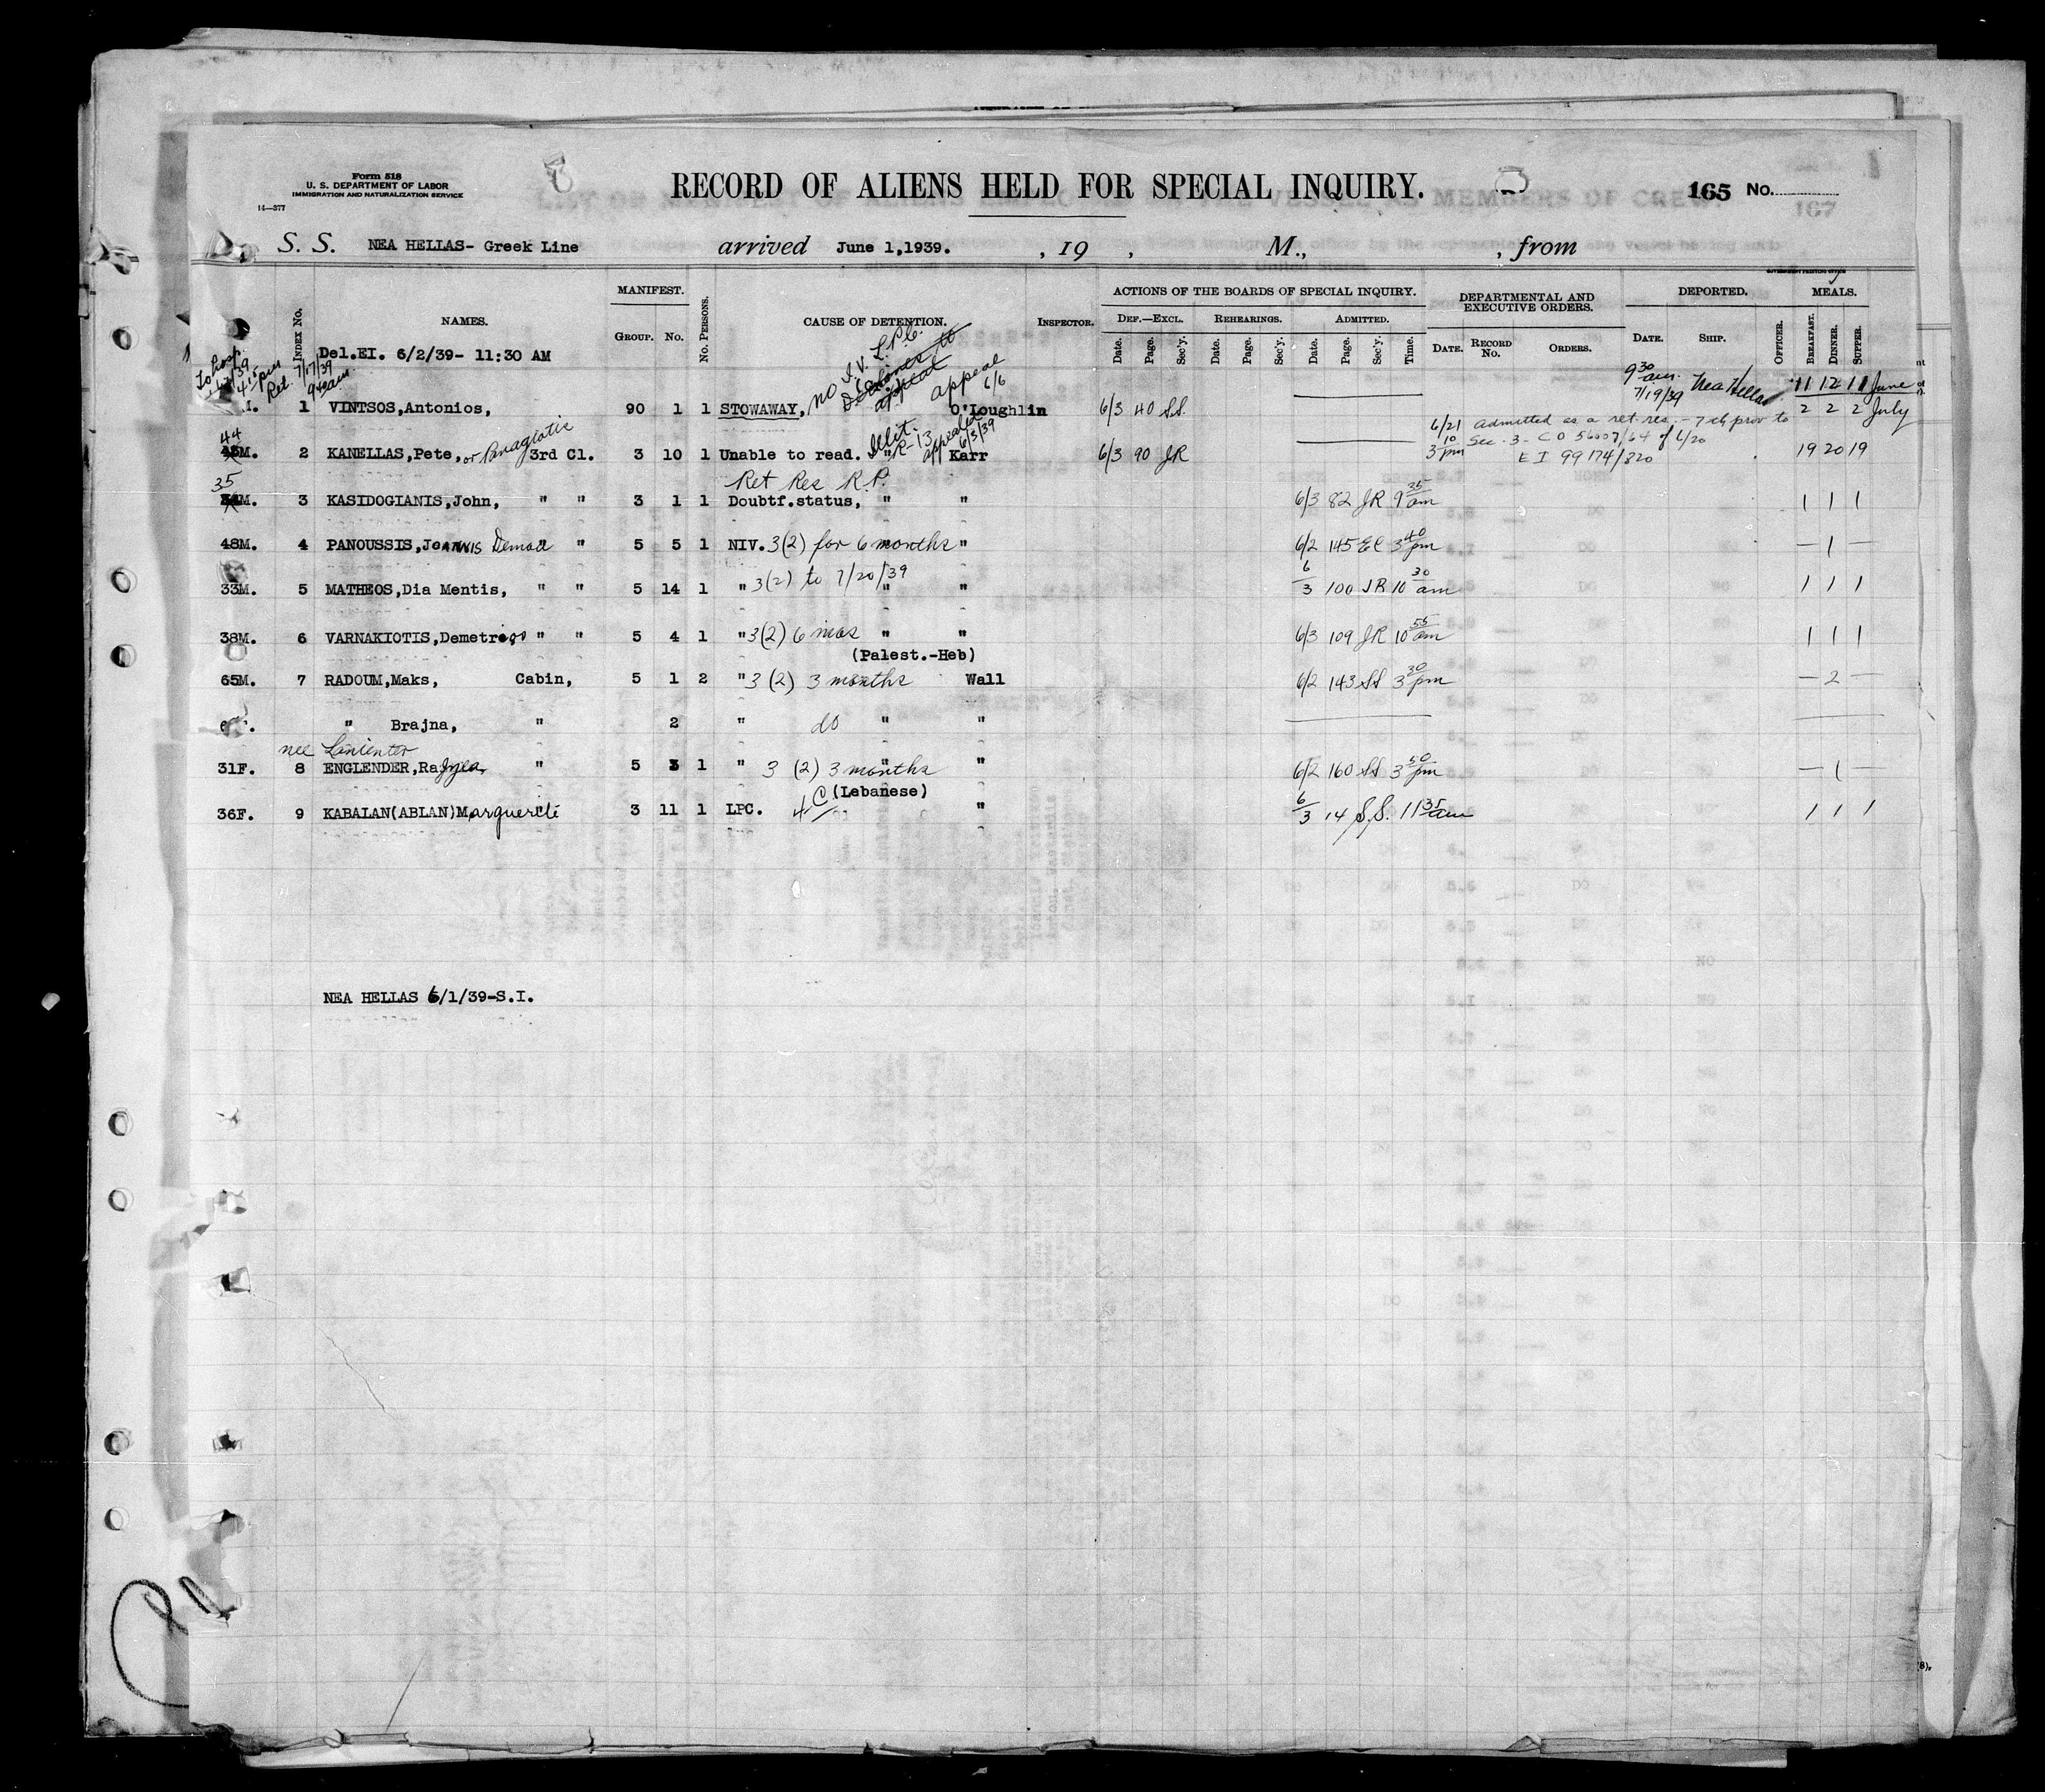 Form 518
U. S. DEPARTMENT OF LABOR
IMMIGRATION AND NATURALIZATION SERVICE
14—377
RECORD OF ALIENS HELD FOR SPECIAL INQUIRY.
165 No.
S. S. NEA HELLAS- Greek Line arrived June 1,1939. , 19 , M., , from
GOVERNMENT PRINTING OFFICE
INDEX No. NAMES. MANIFEST. No. PERSONS. CAUSE OF DETENTION. INSPECTOR. ACTIONS OF THE BOARDS OF SPECIAL INQUIRY. DEPARTMENTAL AND EXECUTIVE ORDERS. DEPORTED. MEALS.
GROUP. No. DEF.—EXCL. REHEARINGS. ADMITTED.
Date. Page. Sec'y. Date. Page. Sec'y. Date. Page. Sec'y. Time. DATE. RECORD No. ORDERS. DATE. SHIP. OFFICER. BREAKFAST. DINNER. SUPPER.
Del.EI. 6/2/39- 11:30 AM
To hosp. 4 15 pm
Ret. 7/17/39 9 am
no I.V. L.P.C.
Declines to appeal
appeal 6/6
9 30 am. 7/19/39 Nea Hellas 11 12 11 June
1 VINTSOS,Antonios, 90 1 1 STOWAWAY, O'Loughlin 6/3 40 SS 2 2 2 July
44
M. 2 KANELLAS,Pete, or Panagiotis 3rd Cl. 3 10 1 Unable to read. Illit. " R-13 appealed 6/3/39 Karr 6/3 90 JR 6/21 3 10 pm admitted as a ret. res. - 7th prov to Sec. 3 - CO 56007/64 of 6/20 EI 99174/820 19 20 19
35
Ret Res R.P.
M. 3 KASIDOGIANIS,John, " " 3 1 1 Doubtf.status, " " 6/3 82 JR 9 35 am 1 1 1
48M. 4 PANOUSSIS,Joannis " " 5 5 1 NIV. 3(2) for 6 months " 6/2 145 EC 3 40 pm — 1 —
33M. 5 MATHEOS,Dia Mentis, " " 5 14 1 " 3(2) to 7/20/39 " " 6/3 100 JR 10 30 am 1 1 1
38M. 6 VARNAKIOTIS,Demetrios " " 5 4 1 " 3(2) 6 mos " " 6/3 109 JR 10 55 am 1 1 1
(Palest.-Heb)
65M. 7 RADOUM,Maks, Cabin, 5 1 2 " 3 (2) 3 months Wall 6/2 143 SS 3 30 pm — 2 —
" Brajna, " 2 " do " "
nee
31F. 8 ENGLENDER, " 5 3 1 " 3 (2) 3 months " 6/2 160 SS 3 50 pm — 1 —
(Lebanese)
36F. 9 KABALAN(ABLAN)Marguerite 3 11 1 LPC. 4C " 6/3 14 S.S. 11 35 am 1 1 1
NEA HELLAS 6/1/39-S.I.